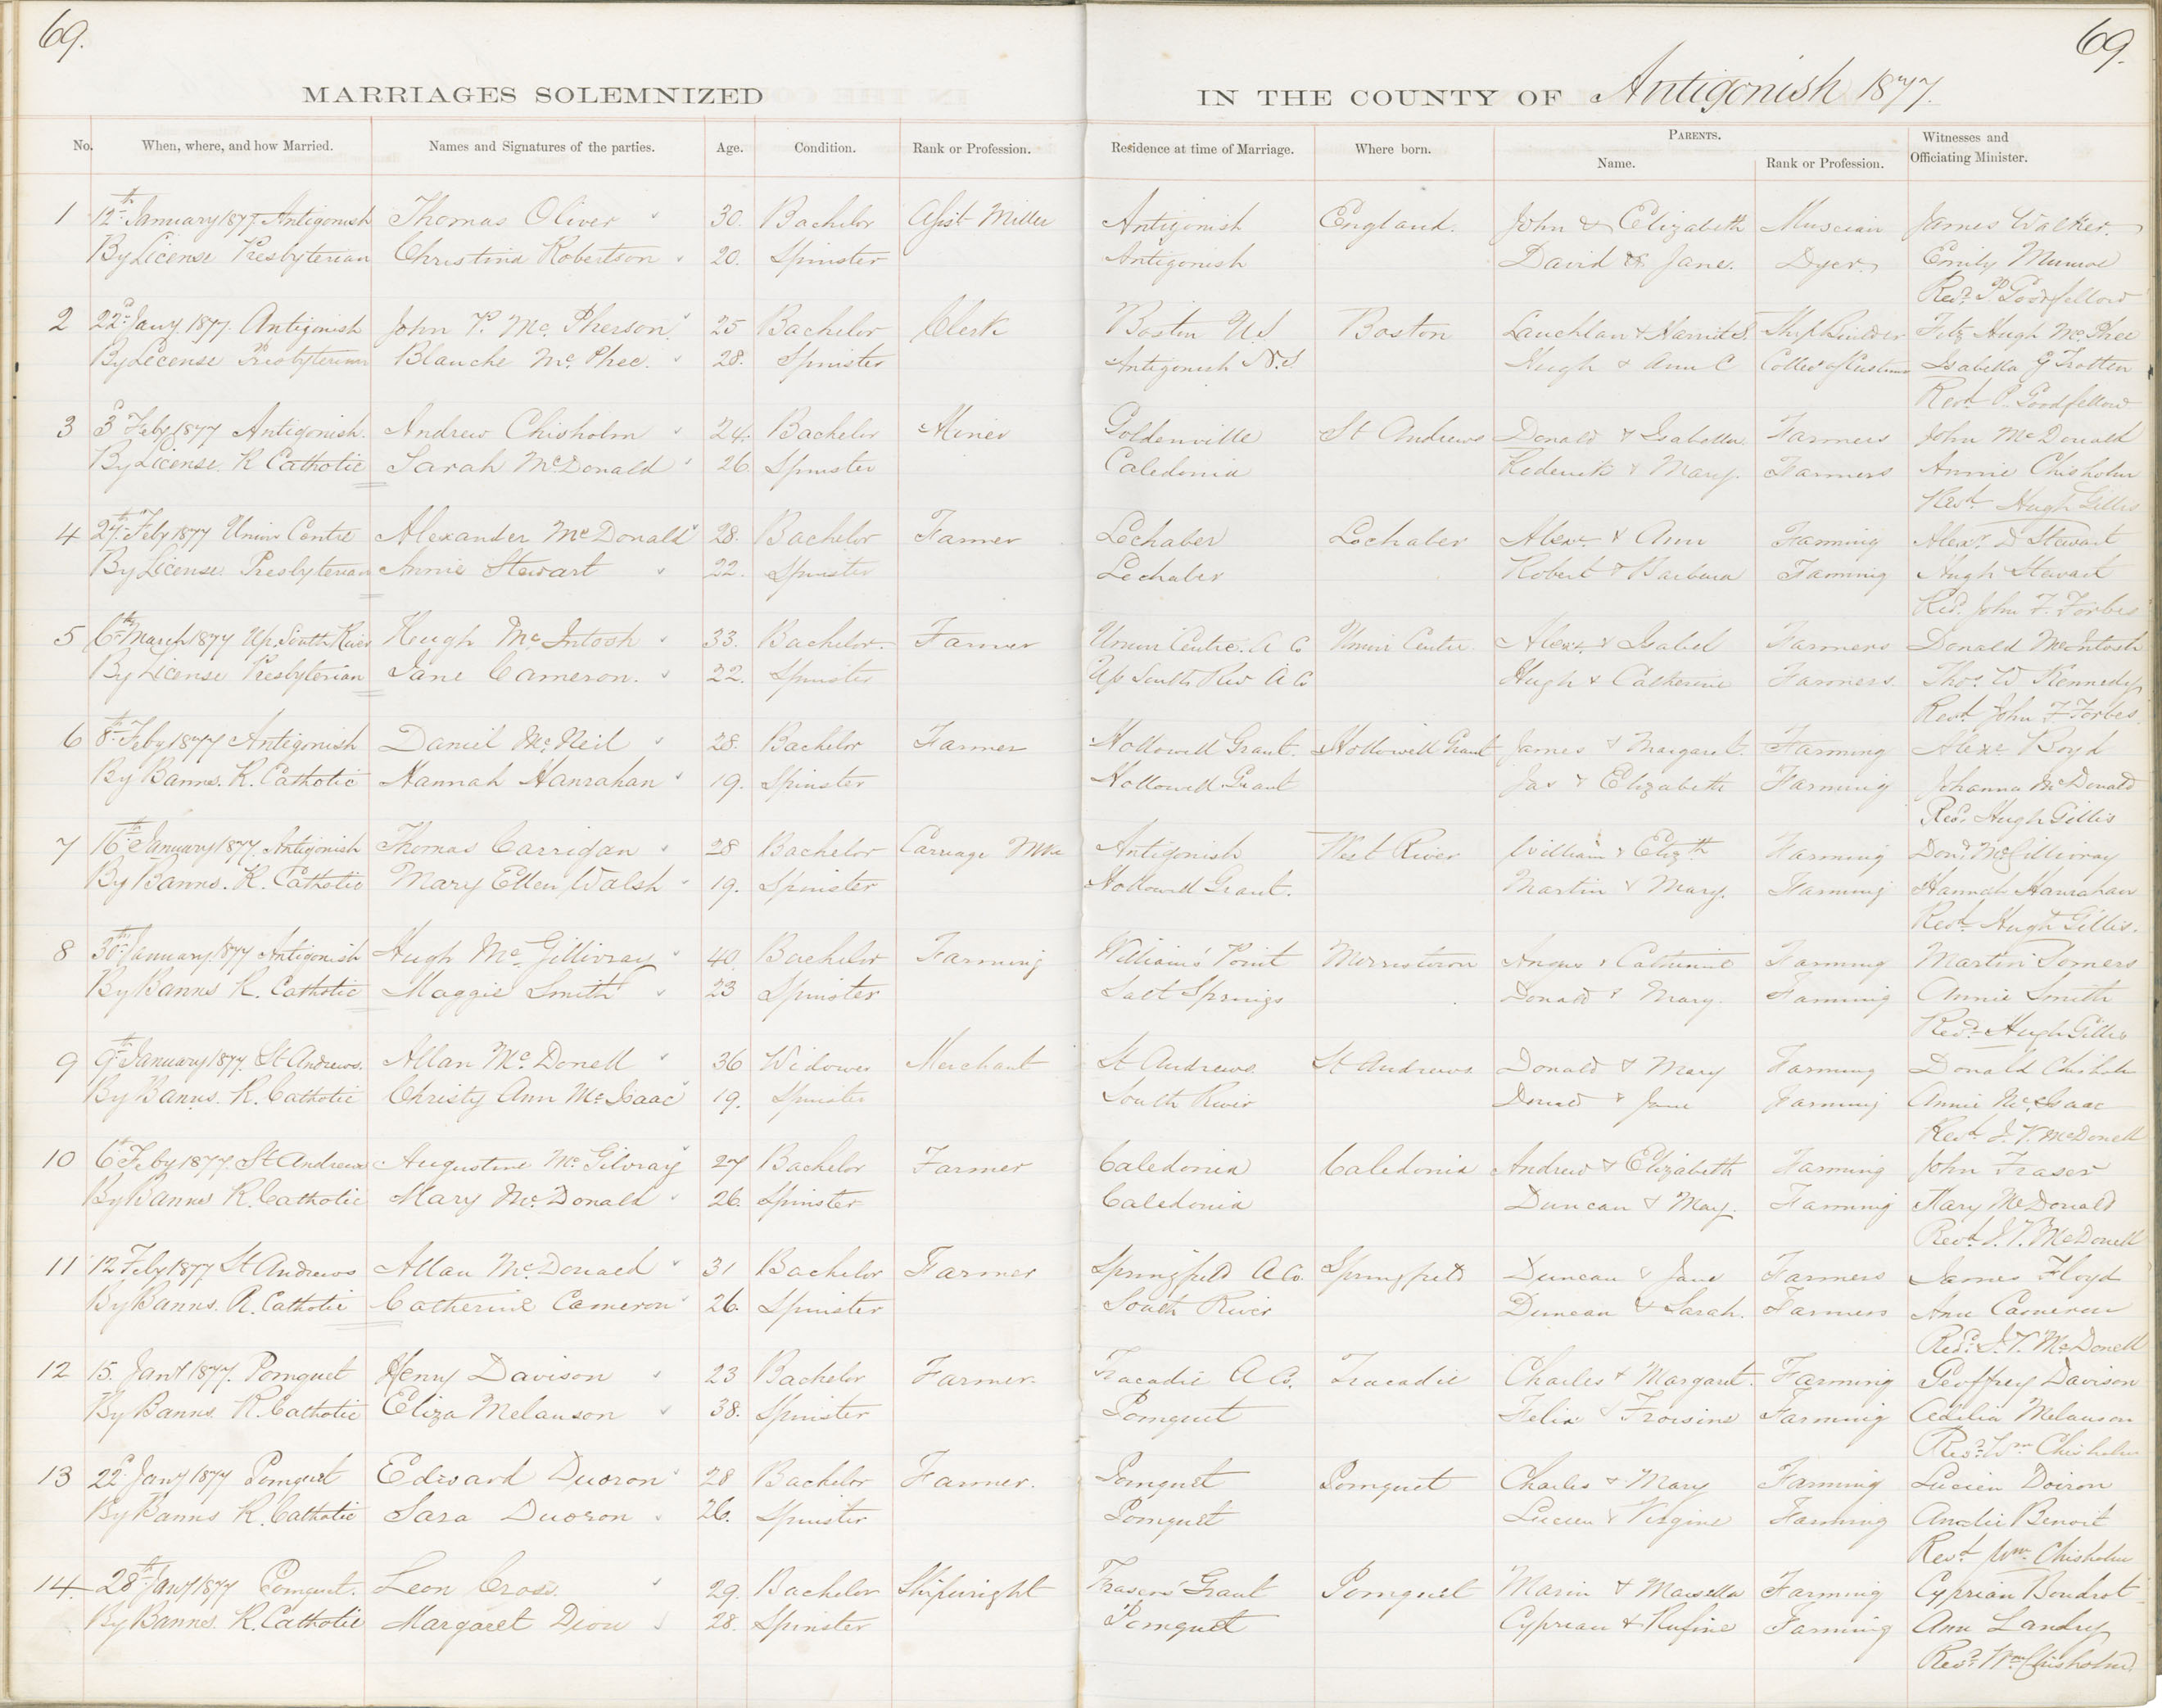 69.
69.
MARRIAGES SOLEMNIZED IN THE COUNTY OF Antigonish 1877.
No. When, where, and how Married. Names and Signatures of the parties. Age. Condition. Rank or Profession. Residence at time of Marriage. Where born. PARENTS. Name. Rank or Profession. Witnesses and Officiating Minister.
1 12th January 1877 Antigonish Thomas Oliver 30. Bachelor Asst Miller Antigonish England. John & Elizabeth Musician James Walker.
By License Presbyterian Christina Robertson 20. Spinster Antigonish David & Jane. Dyer Emily Munroe
Revd. P Goodfellow
2 22d Jany 1877. Antigonish John P. McPherson 25 Bachelor Clerk Boston U.S Boston Lauchlan & Harriet S. Shipbuilder Fitz Hugh McPhee
By License Presbyterian Blanche McPhee. 28. Spinster Antigonish N.S Hugh & Ann C Collec of Customs Isabella G Trotter
Revd. P. Goodfellow
3 3d Feby 1877 Antigonish. Andrew Chisholm 24. Bachelor Miner Goldenville St Andrews Donald & Isabella Farmers John McDonald
By License. R Catholic Sarah McDonald 26. Spinster Caledonia Roderick & Mary. Farmers Annie Chisholm
Revd Hugh Gillis
4 27th Feby 1877 Union Centre Alexander McDonald 28. Bachelor Farmer Lochaber Lochaber Alexr & Ann Farming Alexr. D Stewart
By License. Presbyterian Annie Stewart 22. Spinster Lochaber Robert & Barbara Farming Hugh Stewart
Revd. John F. Forbes
5 6th March 1877 Up. South River Hugh McIntosh 33. Bachelor. Farmer Union Centre. A Co Union Centre Alexr. & Isabel Farmers Donald McIntosh
By License Presbyterian Jane Cameron. 22. Spinster Up South Riv A Co Hugh & Catherine Farmers Thos. W Kennedy
Revd. John F Forbes
6 8th Feby 1877 Antigonish Daniel McNeil 28. Bachelor Farmer Hollowell Grant. Hollowell Grant James & Margaret. Farming Alexr Boyd
By Banns. R. Catholic Hannah Hanrahan 19. Spinster Hollowell Grant Jas & Elizabeth Farming Johanna McDonald
Revd. Hugh Gillis
7 16th January 1877. Antigonish Thomas Carrigan 28 Bachelor Carriage Mke Antigonish West River William & Elizth Farming Dond McGillivray
By Banns. R. Catholic Mary Ellen Walsh 19. Spinster Hollowell Grant. Martin & Mary. Farming Hannah Hanrahan
Revd. Hugh Gillis.
8 30th January 1877 Antigonish Hugh McGillivray 40. Bachelor Farming William's Point Morristown Angus & Catherine Farming Martin Somers
By Banns R. Catholic Maggie Smith 23 Spinster Salt Springs Donald & Mary. Farming Annie Smith
Revd. Hugh Gillis
9 9th January 1877. St Andrews. Allan McDonell 36 Widower Merchant St Andrews St Andrews Donald & Mary Farming Donald Chisholm
By Banns. R. Catholic Christy Ann McIsaac 19. Spinster South River Donald & Jane Farming Annie McIsaac
Revd. J. V. McDonell
10 6th Feby 1877. St Andrews Augustine McGilvray 27 Bachelor Farmer Caledonia Caledonia Andrew & Elizabeth Farming John Fraser
By Banns R. Catholic Mary McDonald 26. Spinster Caledonia Duncan & Mary. Farming Mary McDonald
Revd. J. V. McDonell
11 12 Feby 1877 St Andrews Allan McDonald 31 Bachelor Farmer Springfield A Co. Springfield Duncan & Jane Farmers James Floyd
By Banns. R. Catholic Catherine Cameron 26. Spinster South River Duncan & Sarah. Farmers Ann Cameron
Revd. J. V. McDonell
12 15. Jany 1877. Pomquet Henry Davison 23 Bachelor Farmer. Tracadie A Co. Tracadie Charles & Margaret. Farming Geoffrey Davison
By Banns R. Catholic Eliza Melanson 38. Spinster Pomquet Felix & Froisine Farming Adelia Melanson
Revd. Wm Chisholm
13 22d Jany 1877 Pomquet Edward Duoron 28 Bachelor Farmer. Pomquet Pomquet Charles & Mary Farming Lucien Doiron
By Banns R. Catholic Sara Duoron 26. Spinster Pomquet Lucien & Virgine Farming Andie Benoit
Revd Wm. Chisholm
14 28th Jany 1877 Pomquet. Leon Cross. 29. Bachelor Shipwright Frasers' Grant Pomquet Marin & Marsella Farming Cyprian Boudrot
By Banns. R. Catholic Margaret Diou 28. Spinster Pomquet Cyprean & Rufine Farming Ann Landry
Revd. Wm Chisholm